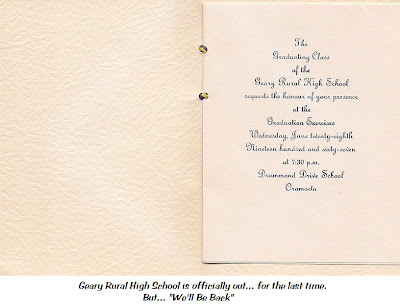 The
Graduating Class
of the
Geary Rural High School
requests the honour of your presence
at the
Graduation Exercises
Wednesday, June twenty-eighth
Nineteen hundred and sixty-seven
at 7:30 p.m.
Drummond Drive School
Oromocto
Geary Rural High School is officially out... for the last time.
But... "We'll Be Back"